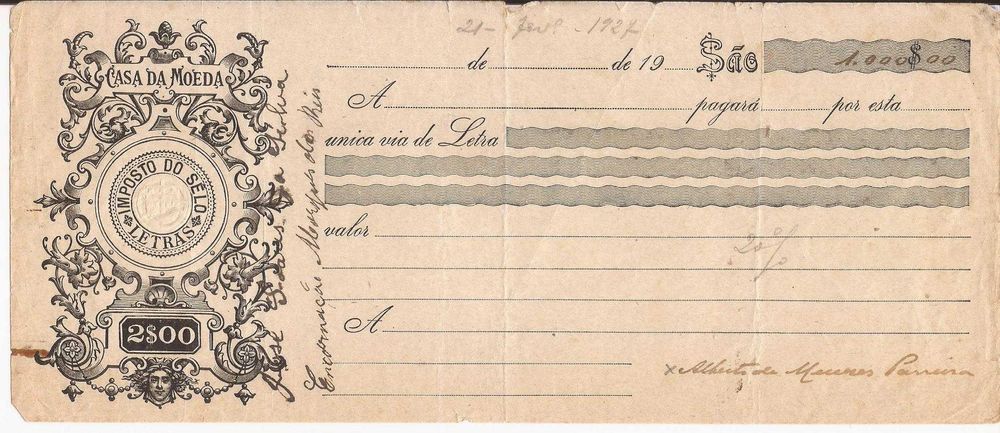 CASA DA MOEDA
IMPOSTO DO SÊLO
LETRAS
2$00
José da Silva
Encarnação dos Reis
21 - Fev.º - 1927
de de 19 São 1.000$00
A pagará por esta
unica via de Letra
valor
20%
A
x Alberto de Menezes Parreira